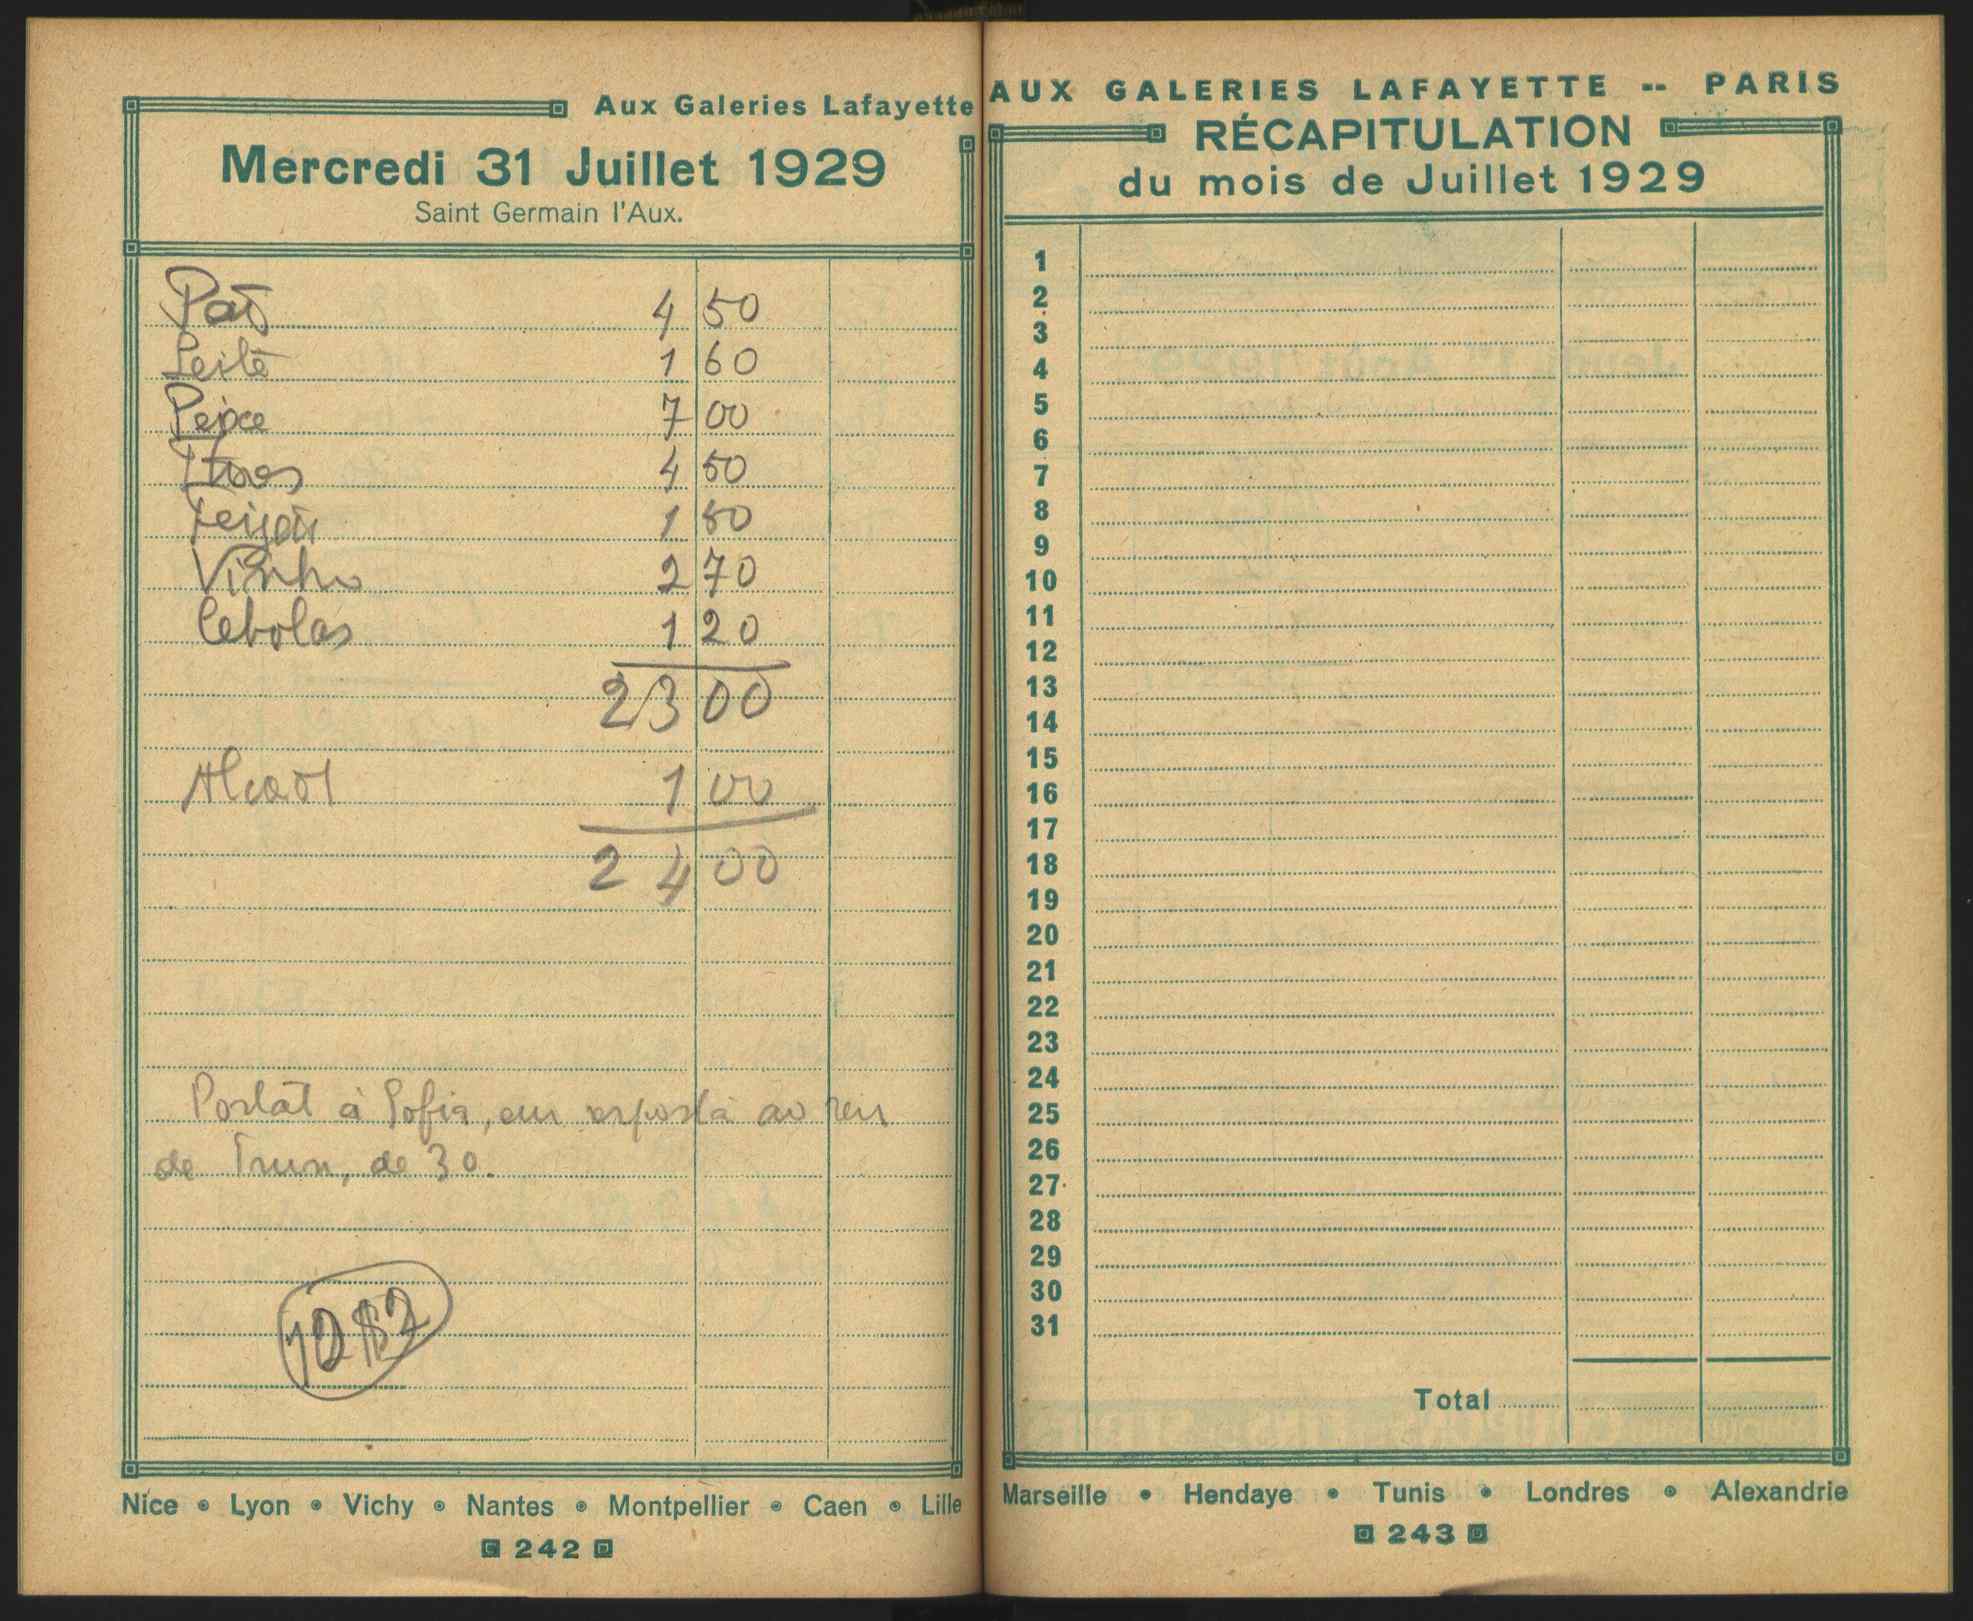 Aux Galeries Lafayette
Mercredi 31 Juillet 1929
Saint Germain l'Aux.
Paõ 4 50
Leite 1 60
Peixe 7 00
4 50
Feijaõ 1 50
Vinho 2 70
Cebolas 1 20
23 00
Alcool 1 00
24 00
Postal à Sofia, em resposta ao seu
de Irun, de 30.
Nice • Lyon • Vichy • Nantes • Montpellier • Caen • Lille
242
AUX GALERIES LAFAYETTE -- PARIS
RÉCAPITULATION
du mois de Juillet 1929
1
2
3
4
5
6
7
8
9
10
11
12
13
14
15
16
17
18
19
20
21
22
23
24
25
26
27
28
29
30
31
Total
Marseille • Hendaye • Tunis • Londres • Alexandrie
243